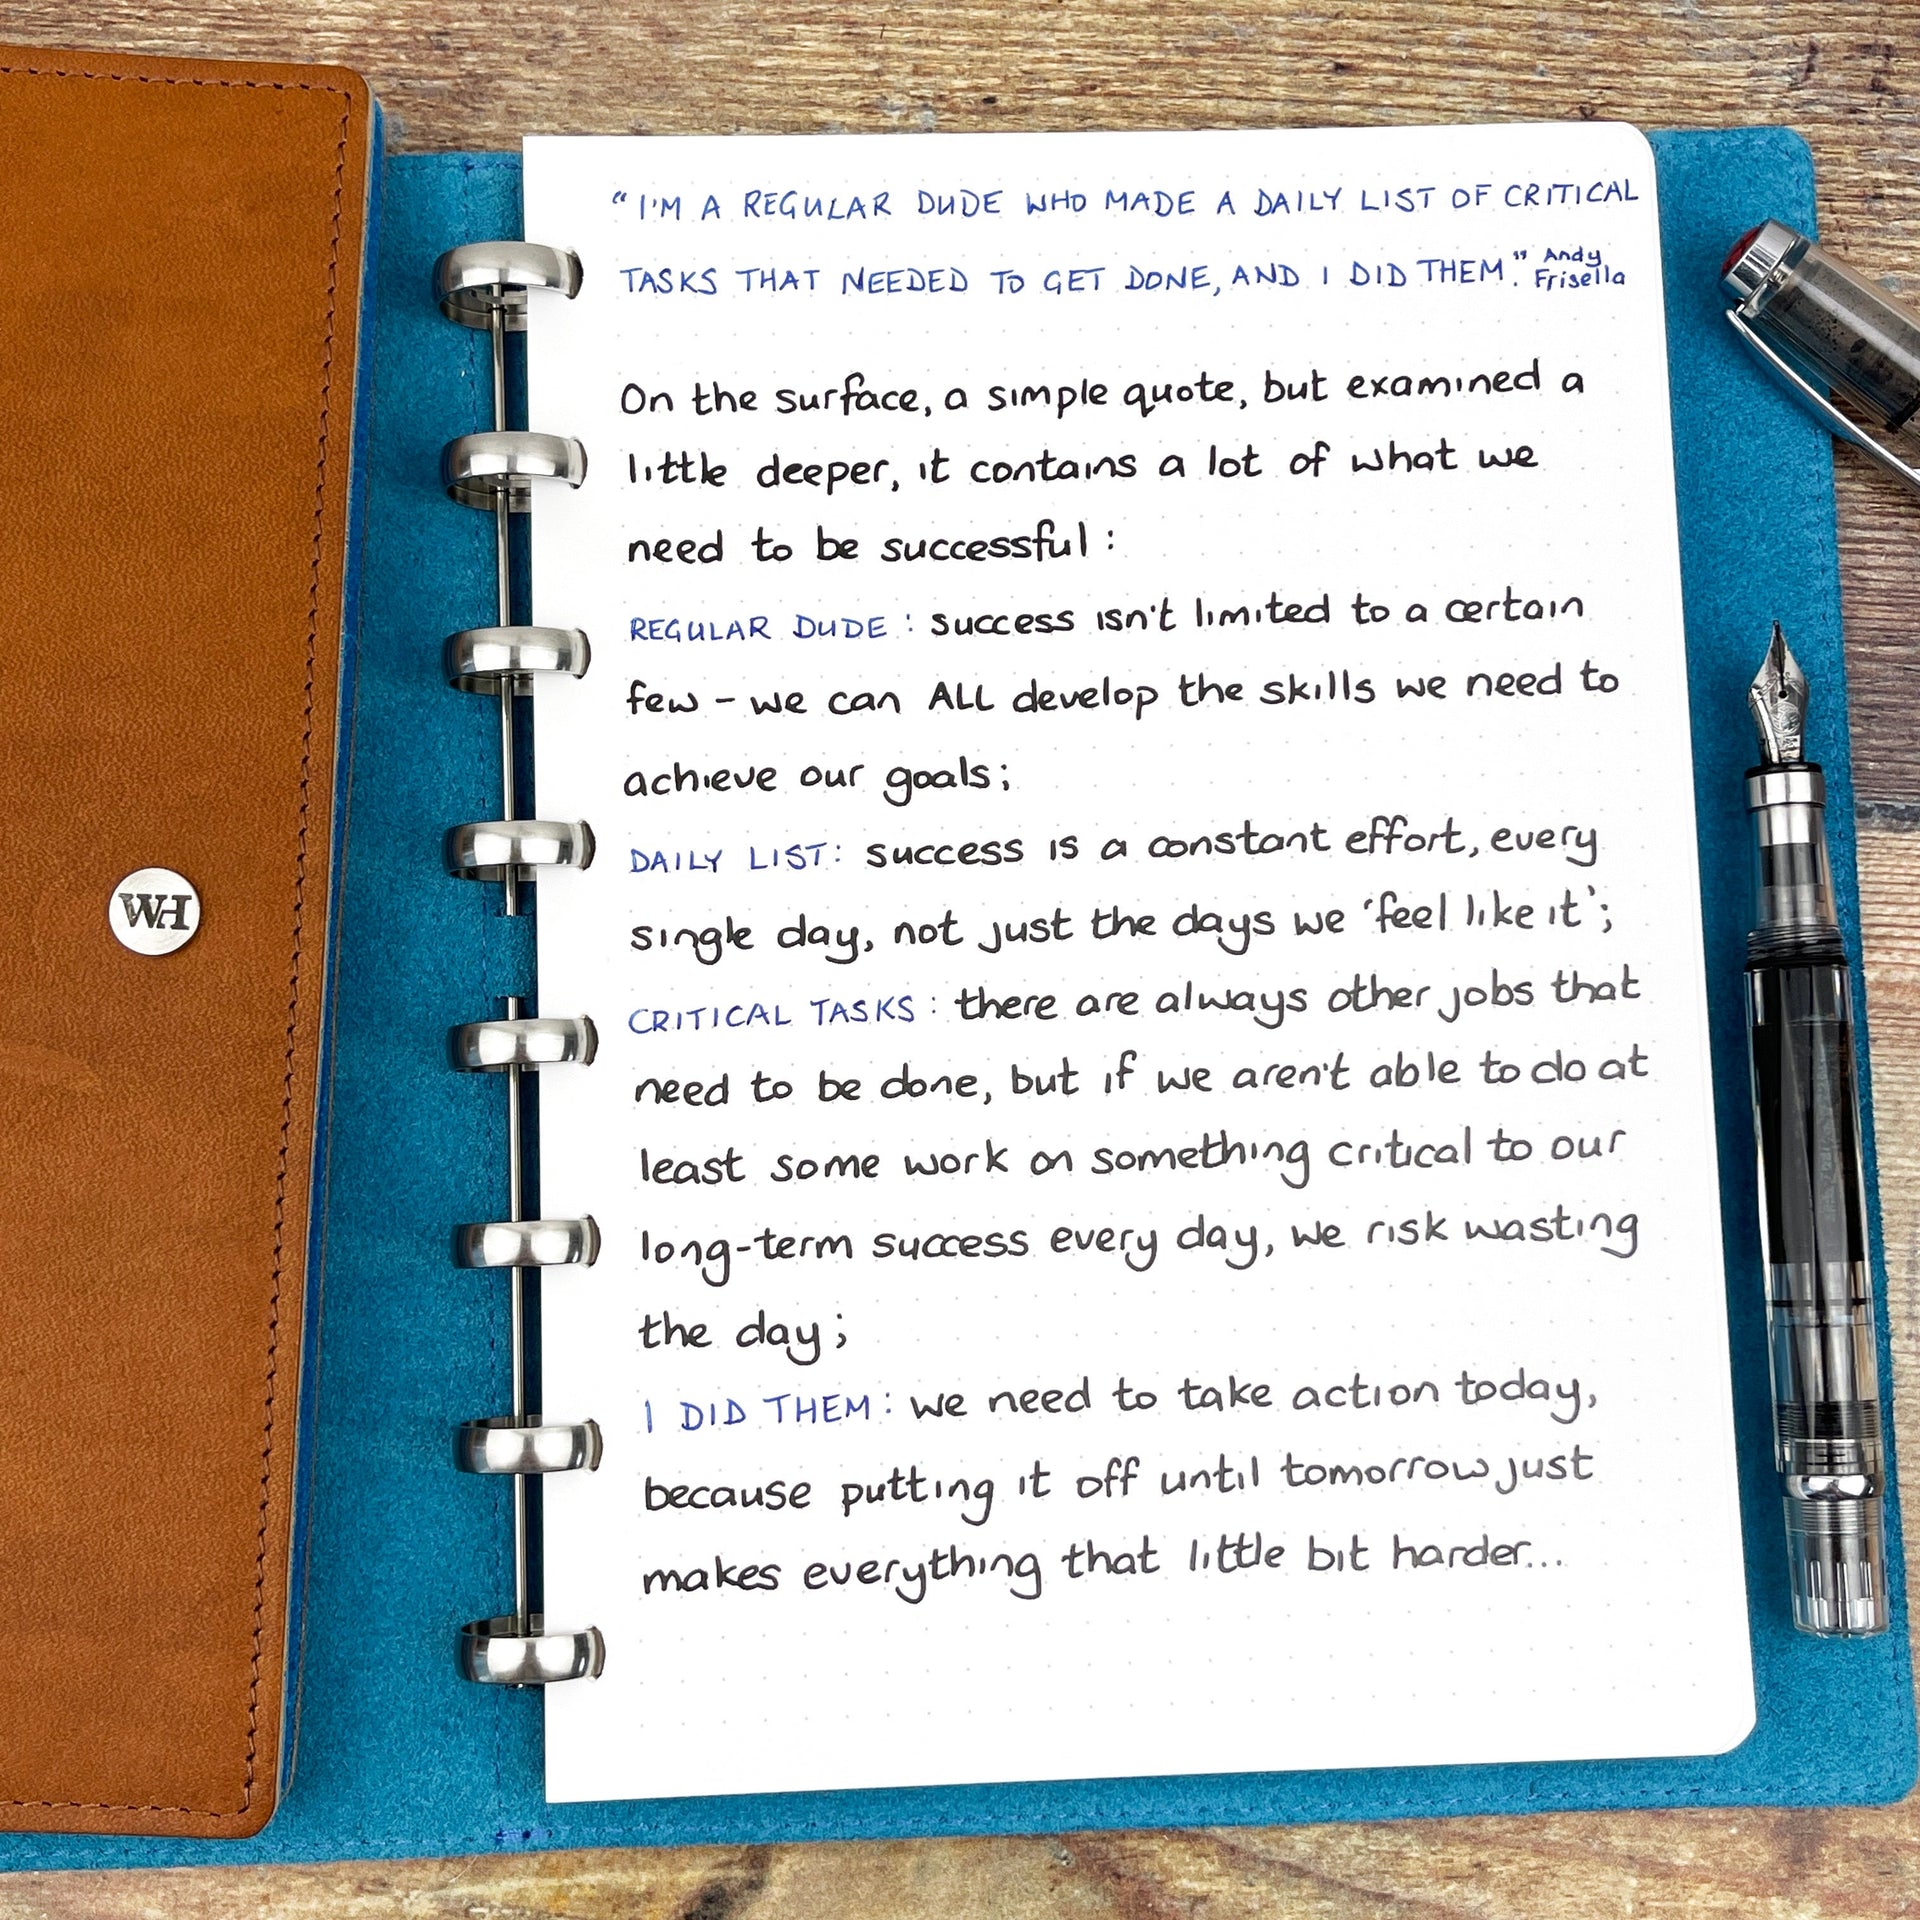 "I'M A REGULAR DUDE WHO MADE A DAILY LIST OF CRITICAL
TASKS THAT NEEDED TO GET DONE, AND I DID THEM." Andy
Frisella
On the surface, a simple quote, but examined a
little deeper, it contains a lot of what we
need to be successful:
REGULAR DUDE: success isn't limited to a certain
few - we can ALL develop the skills we need to
achieve our goals;
DAILY LIST: success is a constant effort, every
single day, not just the days we 'feel like it';
CRITICAL TASKS: there are always other jobs that
need to be done, but if we aren't able to do at
least some work on something critical to our
long-term success every day, we risk wasting
the day;
I DID THEM: we need to take action today,
because putting it off until tomorrow just
makes everything that little bit harder...
WH